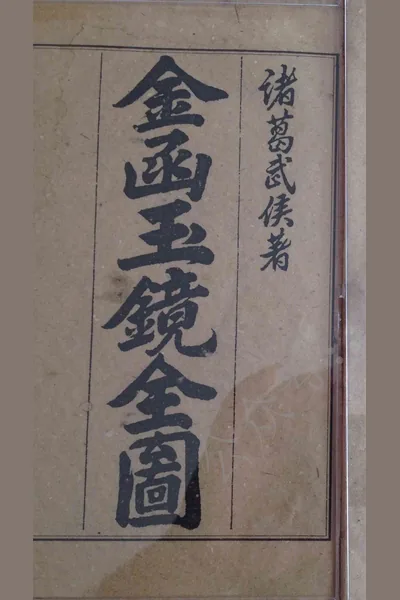 諸葛武侯著
金函玉鏡全圖